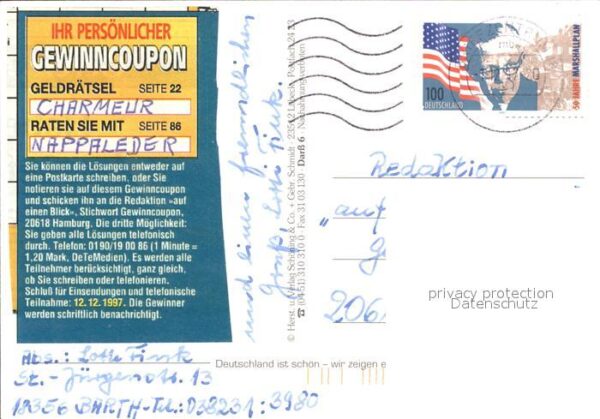 IHR PERSÖNLICHER
GEWINNCOUPON
GELDRÄTSEL SEITE 22
CHARMEUR
RATEN SIE MIT SEITE 86
NAPPALEDER
Sie können die Lösungen entweder auf
eine Postkarte schreiben, oder Sie
notieren sie auf diesem Gewinncoupon
und schicken ihn an die Redaktion »auf
einen Blick«, Stichwort Gewinncoupon,
20618 Hamburg. Die dritte Möglichkeit:
Sie geben alle Lösungen telefonisch
durch. Telefon: 0190/19 00 86 (1 Minute =
1,20 Mark, DeTeMedien). Es werden alle
Teilnehmer berücksichtigt, ganz gleich,
ob Sie schreiben oder telefonieren.
Schluß für Einsendungen und telefonische
Teilnahme: 12.12.1997. Die Gewinner
werden schriftlich benachrichtigt.
Abs.: Lotti Fink
St.-Jürgenstr. 13
18356 BARTH-Tel.: 038231:3980
und einen freundlichen
Gruß, Lotti Fink.
© Herst. u. Verlag Schöning & Co. + Gebr. Schmidt · 23512 Lübeck, Postfach 24 23
☎ (04 51) 310 310 0 · Fax 31 03 130 · Darß 6 · Nachahmung verboten
Deutschland ist schön – wir zeigen e
100
DEUTSCHLAND
50 JAHRE MARSHALLPLAN
Redaktion
"auf
G
206
privacy protection
Datenschutz